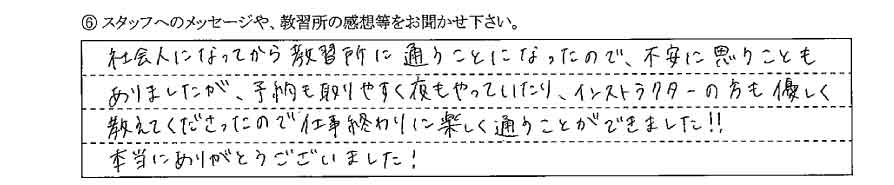 ⑥ スタッフへのメッセージや、教習所の感想等をお聞かせ下さい。
社会人になってから教習所に通うことになったので、不安に思うことも
ありましたが、予約も取りやすく夜もやっていたり、インストラクターの方も優しく
教えてくださったので仕事終わりに楽しく通うことができました!!
本当にありがとうございました!